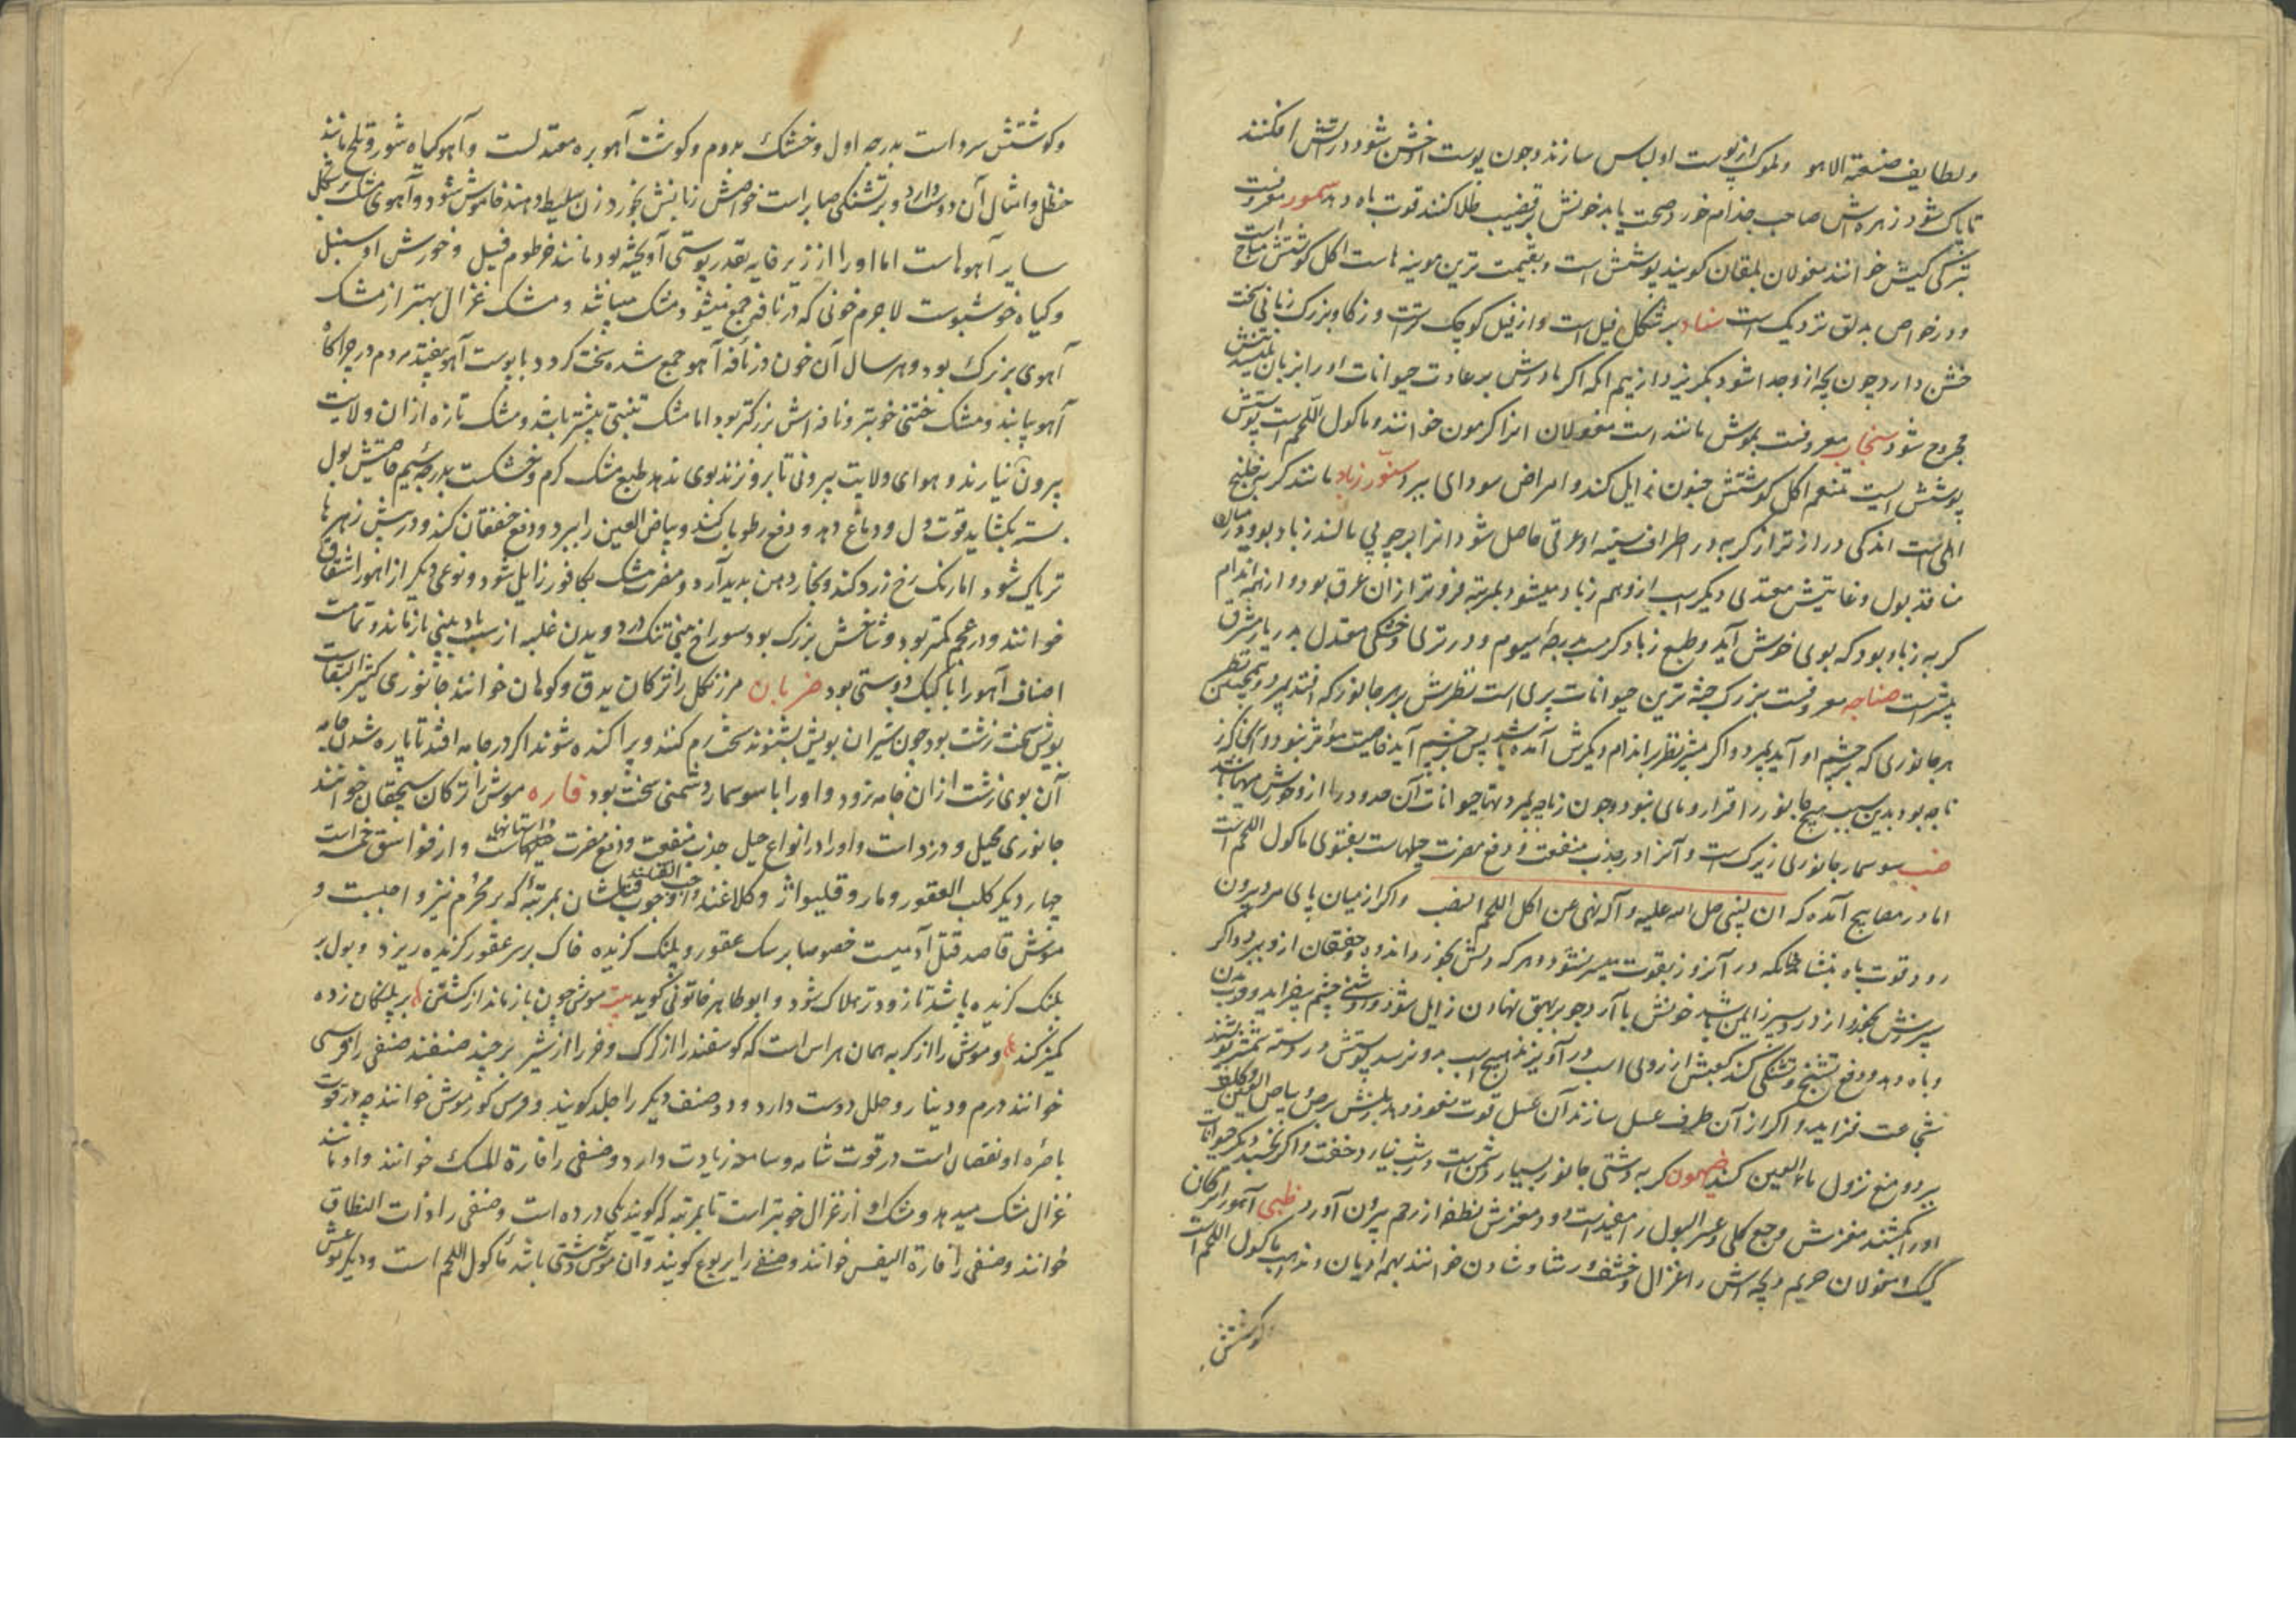 ولطایف صنعة الاهو وملوک از پوست او لباس سازند و چون پوست اخشن شود در آتش افکنند
تا پاک شود زهره‌اش صاحب جذام خورد صحت یابد خونش بر قضیب طلا کنند قوت باه دهد سمور معروفست
بترکی کیش خوانند مغولان بلقان کویند پوشش است و بقیمت ترین موینه هاست اکل کوشتش مباح است
و در خواص بدلق نزدیک است سناد بر شکل فیل است و از فیل کوچک ترست و از کاو بزرک زبانی سخت
خشن دارد چون بچه از و جدا شود بکریزد از بیم انکه اکر مادرش بر عادت حیوانات او را بزبان بلیسد تنش
مجروح شود سنجاب معروفست بموش مانند است مغولان انرا کرمون خوانند و ماکول اللحم است پوستش
پوشش است تنعم اکل کوشتش جنون زایل کند و امراض سودای ببرد سنور زباد مانند کربه خلنج
اهلی است اندکی درازتر از کربه در اطراف سینه او عرقی حاصل شود انرا بر چربی مالند زباد بود و در میان
منافذ بول و غایتش معتدی دیکر است ازو هم زباد میشود بمرتبه فروتر از ان عرق بود و از همه اندام
کربه زباد بود که بوی خوش آید و طبع زباد کرمست بدرجهٔ سیوم و در تری و خشکی معتدل بدریار مشرق
بیشتر است صناجه معروفست بزرک جثه ترین حیوانات بری است نظرش بر هر جانور که افتد بمیرد و همچنین
هر جانوری که بر چشم او آید بمیرد و اکر بیشتر نظر بر اندام دیکرش آمده باشد پس بر چشم آید خاصیت مؤثر نبود
بود بدین سبب هیچ جانور را قرار و مالی نبود و چون زناجه بمیرد مدتها حیوانات آن حدود را از و خورش مهیا باشد
ضب سوسمار جانوری زیرک است و آنرا در جذب منفعت و دفع مضرت حیلهاست بفتوی ماکول اللحم است
اما در مصابیح آمده که ان النبی صلی الله علیه و آله نهی عن اکل اللحم الضب و اکر از میان پای مرد بیرون
رود قوت باه بنشاند چنانکه در آن روز بقوت میسر نشود و هر که دلش بخورد اندوه و خفقان ازو ببرد و اکر
سپرزش بخورد از درد سپرز ایمن باشد خونش با آرد جو بر بهق نهادن زایل شود و روشنی چشم بیفزاید و فربین
و باه دهد و دفع تشنج و تشنکی کند کعبش از روی اسب درآویزند هیچ اسب بدو نرسد پوستش در دسته شمشیر کیرند
شجاعت فزاید و اکر از آن ظرف عسل سازند آن عسل قوت نعوظ دهد بلبش برص و بیاض العین و کلف
ببرد و منع نزول ماء العین کند ضیون کربه دشتی جانور بسیار دشمن است و شب نیارد خفت و اکر بخسبد دیکر حیوانات
او را بکشند مغزش وجع کلی و عسر البول را مفید است و دود مغزش نطفه از رحم بیرون آورد ظبی آهو را ترکان
کییک و مغولان جریم و بچه‌اش را غزال و خشف و رشا و شادن خوانند بهمه ادیان و مذاهب ماکول اللحم است
کوشتش
وکوشتش سرد است بدرجه اول و خشک بدوم و کوشت آهو بره معتدلست و آهو کیاه شور و تلخ مانند
حنظل و امثال آن دوست دارد و بر تشنکی صابر است خواصش زبانش بخورد زن سلیطه دهند خاموش شود و آهوی مشک بر شکل
سایر آهوهاست اما او را از زیر خایه بقدر پوستی آویخته بود مانند خرطوم فیل و خورش او سنبل
و کیاه خوشبوست لاجرم خونی که در نافه جمع میشود مشک میباشد و مشک غزال بهتر از مشک
آهوی بزرک بود و هر سال آن خون در نافه آهو جمع شده سخت کردد با پوست آهو بیفتد مردم در چراکاه
آهو یابند و مشک ختنی خوبتر و نافه اش بزرکتر بود اما مشک تبتی بیشتر باشد و مشک تازه از ان ولایت
بیرون نیارند و هوای ولایت بیرونی تا برو نزند بوی ندهد طبع مشک کرم و خشکست بدرجه سیم خاصیتش بول
بسته بکشاید قوت دل و دماغ دهد و دفع رطوبات کند و بیاض العین را ببرد و دفع خفقان کند و درسش زهرها
تریاک شود اما رنک رخ زرد کند و بخار دهن بدید آرد و مضرت مشک بکافور زایل شود و نوعی دیکر از اهو را شقاق
خوانند و در عجم کمتر بود و شاخش بزرک بود سوراخ بینی تنک دارد و دویدن غلبه از سبب باد بینی بازماند و تمامت
اصناف آهو را با کبک دوستی بود ضربان مرزنکل را ترکان بدق و کوهان خوانند جانوری کثیر
بویش سخت زشت بود چون شیران بویش بشنوند سخت رم کنند و پراکنده شوند اکر در جامه افتد تا پاره شدن جامه
آن بوی زشت از ان جامه نرود و او را با سوسمار دشمنی سخت بود فاره موش را ترکان سیچقان خوانند
جانوری محیل و دزد است و او را در انواع حیل جذب منفعت و دفع مضرت داستانها حیلهاست و از فواسق خمس است
چهار دیکر کلب العقور و مار و قلیواژ و کلاغند و واجب القتلند وجوب قتلشان بمرتبهٔ که بر محرم نیز واجبست و
موش قاصد قتل آدمیست خصوصا بر سک عقور و پلنک کزیده خاک بر سر عقور کزیده ریزد و بول بر
پلنک کزیده پاشد تا زودتر هلاک شود و ابو طاهر خاتونی کوید بیت موش چون باز نماند از کشتن بر پلنکان زده
کمیز کند و موش را از کربه همان هراس است که کوسفند را از کرک و خر را از شیر بر چند صنفند صنفی را فرسی
خوانند درم و دینار و حلل دوست دارد و صنف دیکر را خلد کویند و فرس کورموش خوانند چه در قوت
باصره او نقصان است در قوت شامه و سامعه زیادت دارد و صنفی را فارة المسک خوانند و او مانند
غزال مشک میدهد و مشک او از غزال خوبتر است تا بمرتبهٔ که کویند یکی در ده است و صنفی را ذات النطاق
خوانند و صنفی را فارة البیض خوانند و صنفی را یربوع کویند و آن موش دشتی باشد ماکول اللحم است و دیکر